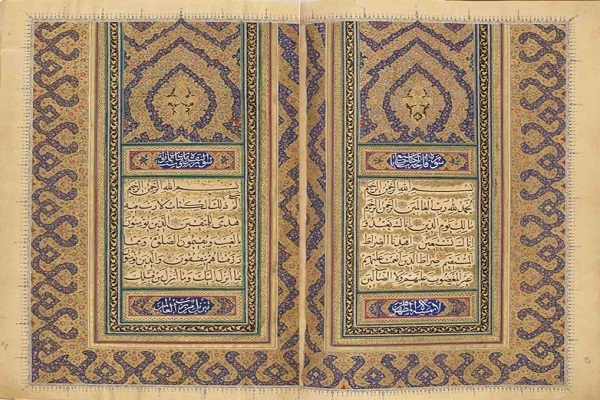 سورة فاتحة الكتاب
بسم الله الرحمن الرحيم
الحمد لله رب العالمين الرحمن الرحيم
مالك يوم الدين اياك نعبد و
اياك نستعين اهدنا الصراط
المستقيم صراط الذين انعمت عليهم
غير المغضوب عليهم ولا الضالين
لا يمسه الا المطهرون
سورة البقرة
بسم الله الرحمن الرحيم
الم ذلك الكتاب لا ريب فيه
هدى للمتقين الذين يؤمنون
بالغيب ويقيمون الصلوة ومما
رزقناهم ينفقون والذين يؤمنون
بما انزل اليك وما انزل من قبلك
تنزيل من رب العالمين